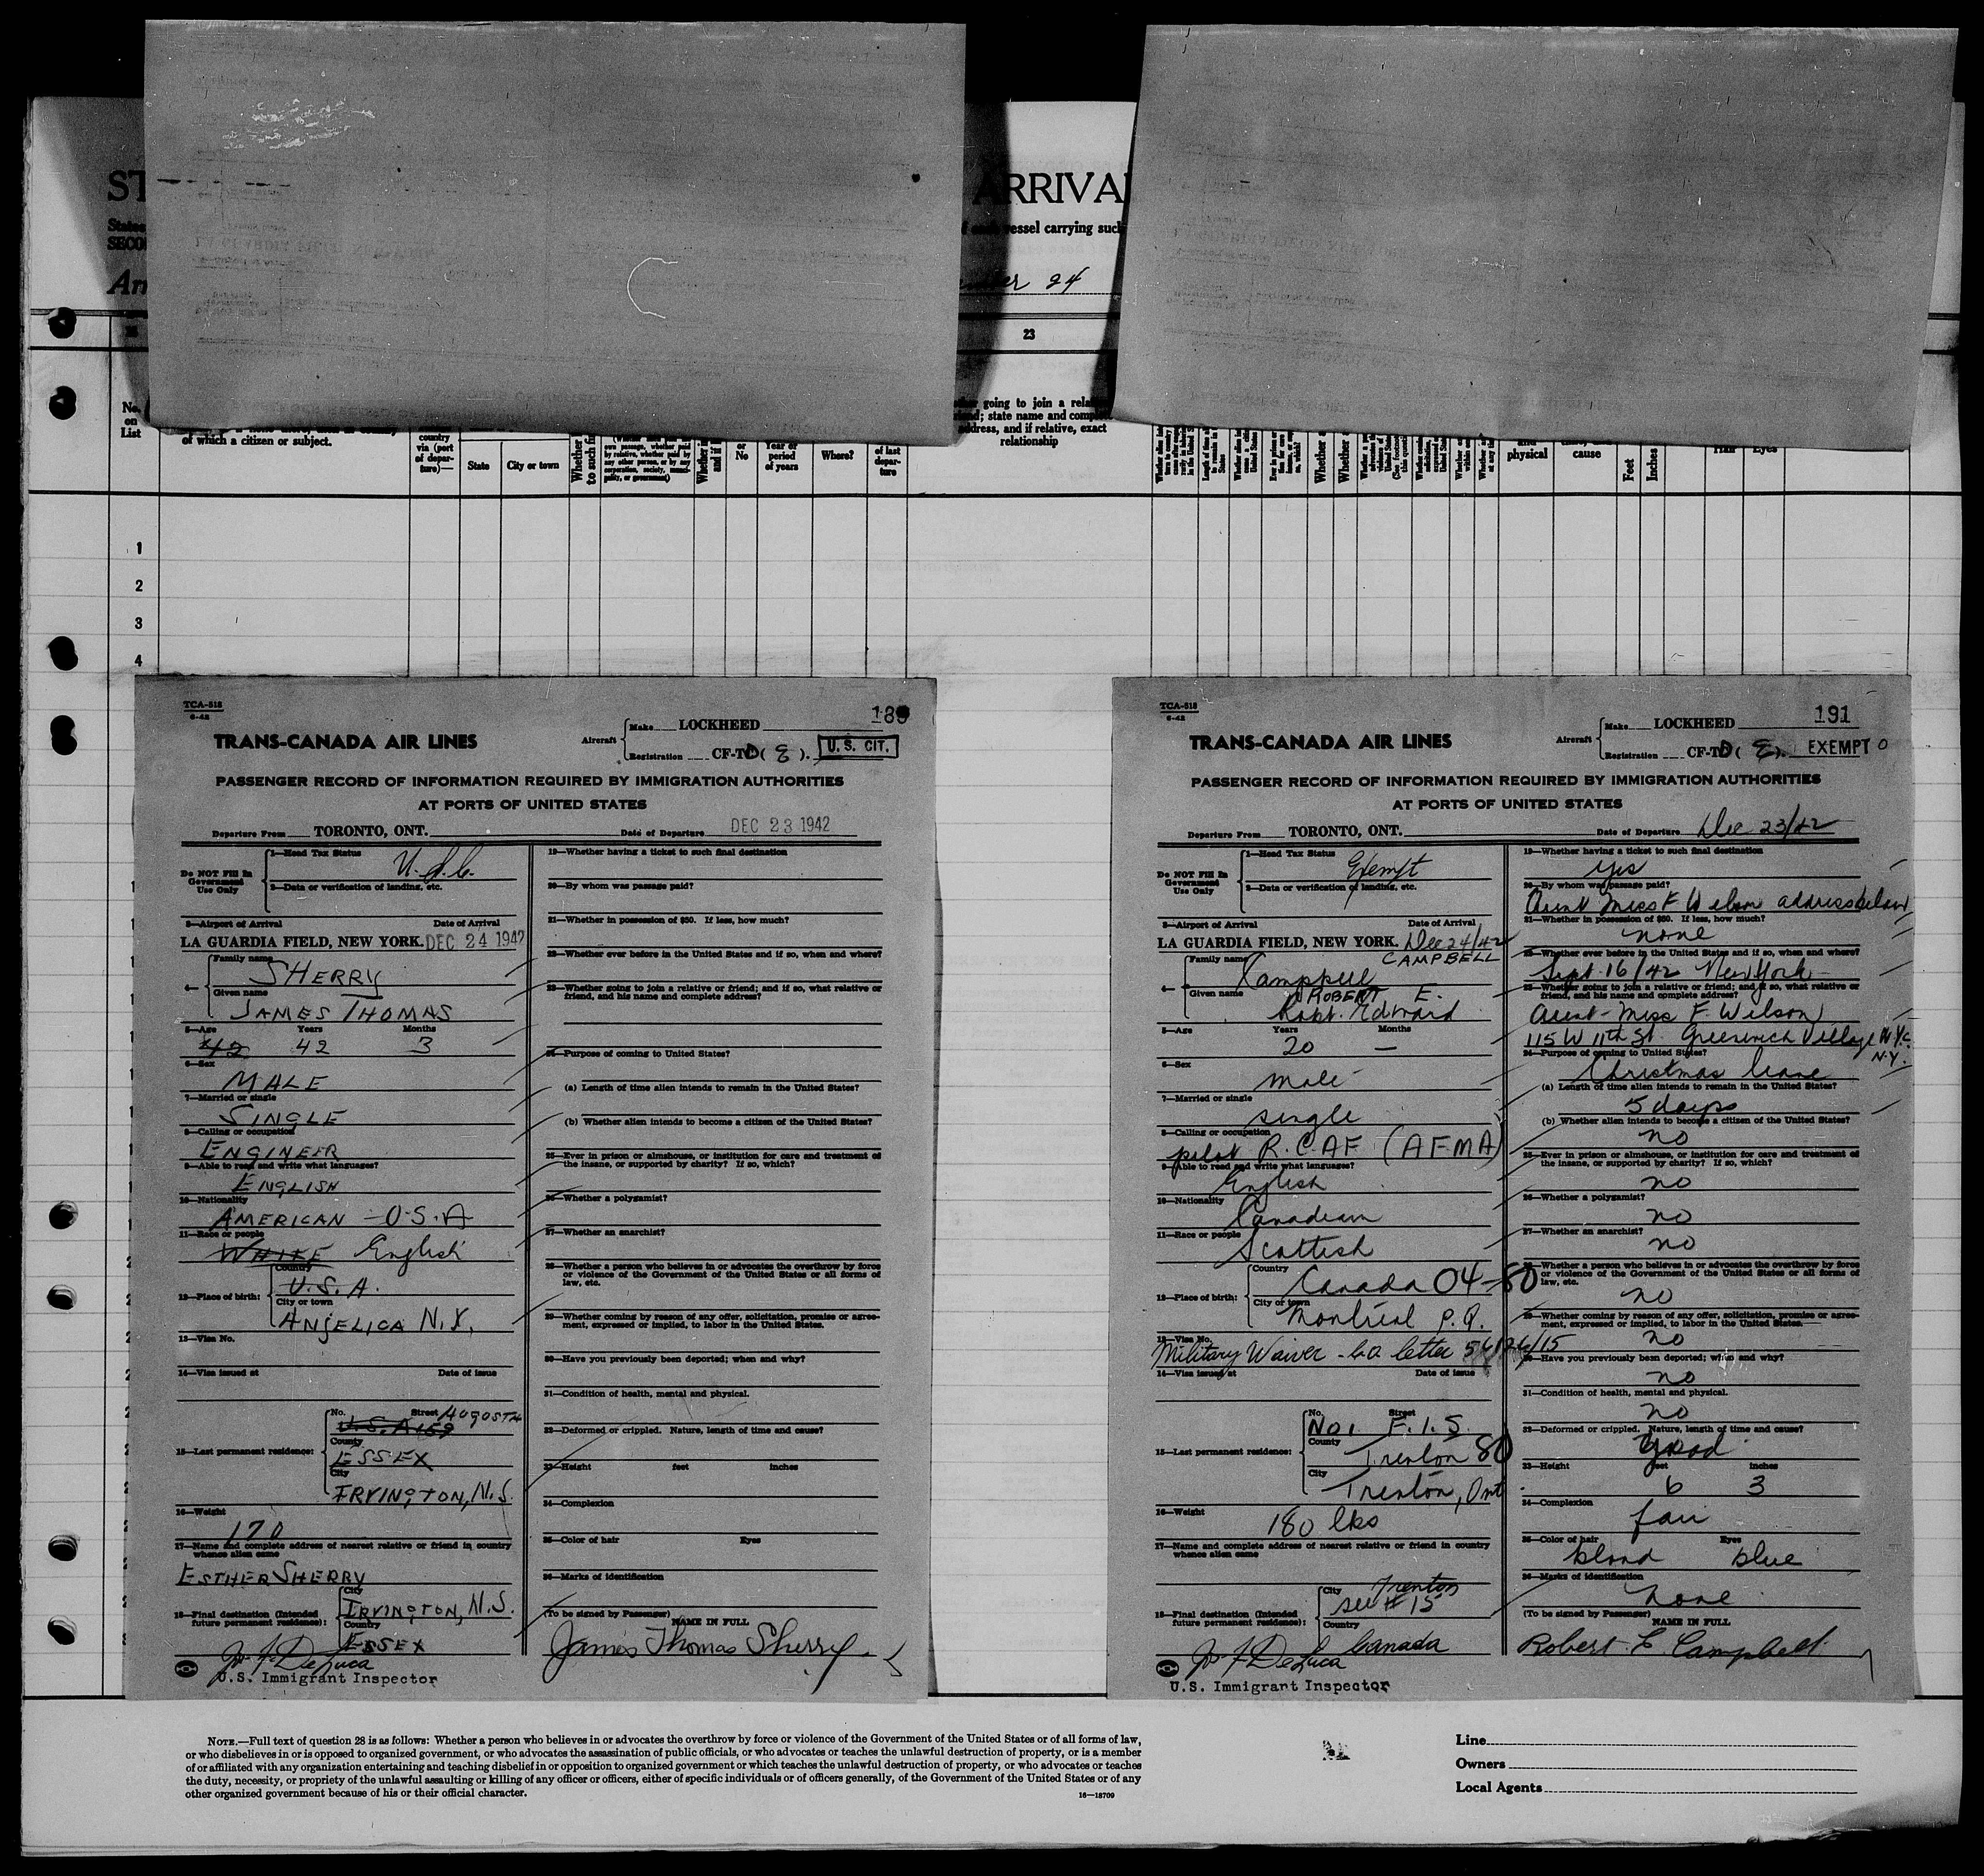 ARRIVAL
vessel carrying such
24
23
No. on List
of which a citizen or subject.
country via (port of departure)—
State
City or town
or No
Year or period of years
Where?
of last departure
going to join a
state name and
address, and if relative, exact relationship
physical
cause
Feet
Inches
1
2
3
4
TCA-518
6-42
TRANS-CANADA AIR LINES
Aircraft
Make LOCKHEED
189
Registration CF-TCD (E).
U. S. CIT.
PASSENGER RECORD OF INFORMATION REQUIRED BY IMMIGRATION AUTHORITIES
AT PORTS OF UNITED STATES
Departure From TORONTO, ONT.
Date of Departure DEC 23 1942
Do NOT Fill In Government Use Only
1—Head Tax Status
U.S.C.
2—Data or verification of landing, etc.
3—Airport of Arrival Date of Arrival
LA GUARDIA FIELD, NEW YORK. DEC 24 1942
4—
Family name
SHERRY
Given name
JAMES THOMAS
5—Age Years Months
42 42 3
6—Sex
MALE
7—Married or single
SINGLE
8—Calling or occupation
ENGINEER
9—Able to read and write what languages?
ENGLISH
10—Nationality
AMERICAN - U.S.A
11—Race or people
WHITE English
12—Place of birth:
Country
U.S.A.
City or town
ANJELICA N.Y.
13—Visa No.
14—Visa issued at Date of issue
15—Last permanent residence:
No. Street
U.S.A 159
County
ESSEX
City
IRVINGTON, N.J.
16—Weight
170
17—Name and complete address of nearest relative or friend in country
whence alien came
ESTHER SHERRY
18—Final destination (Intended
future permanent residence):
City
IRVINGTON, N.J.
Country
ESSEX
J. DeLuca
U.S. Immigrant Inspector
19—Whether having a ticket to such final destination
20—By whom was passage paid?
21—Whether in possession of $50. If less, how much?
22—Whether ever before in the United States and if so, when and where?
23—Whether going to join a relative or friend; and if so, what relative or
friend, and his name and complete address?
24—Purpose of coming to United States?
(a) Length of time alien intends to remain in the United States?
(b) Whether alien intends to become a citizen of the United States?
25—Ever in prison or almshouse, or institution for care and treatment of
the insane, or supported by charity? If so, which?
26—Whether a polygamist?
27—Whether an anarchist?
28—Whether a person who believes in or advocates the overthrow by force
or violence of the Government of the United States or all forms of
law, etc.
29—Whether coming by reason of any offer, solicitation, promise or agree-
ment, expressed or implied, to labor in the United States.
30—Have you previously been deported; when and why?
31—Condition of health, mental and physical.
32—Deformed or crippled. Nature, length of time and cause?
33—Height feet inches
34—Complexion
35—Color of hair Eyes
36—Marks of identification
(To be signed by Passenger)
NAME IN FULL
James Thomas Sherry.
TCA-518
6-42
TRANS-CANADA AIR LINES
Aircraft
Make LOCKHEED
191
Registration CF-TCD (E).
EXEMPT
PASSENGER RECORD OF INFORMATION REQUIRED BY IMMIGRATION AUTHORITIES
AT PORTS OF UNITED STATES
Departure From TORONTO, ONT.
Date of Departure Dec 23/42
Do NOT Fill In Government Use Only
1—Head Tax Status
Exempt
2—Data or verification of landing, etc.
3—Airport of Arrival Date of Arrival
LA GUARDIA FIELD, NEW YORK. Dec 24/42
CAMPBELL
4—
Family name
Kamppell
Given name
ROBERT E.
Robt. Edward
5—Age Years Months
20 —
6—Sex
male
7—Married or single
single
8—Calling or occupation
pilot R.C.AF (AFMA)
9—Able to read and write what languages?
English
10—Nationality
Canadian
11—Race or people
Scottish
12—Place of birth:
Country
Canada 04-80
City or town
Montreal P.Q.
13—Visa No.
Military Waiver - C.O. letter 56/26/15
14—Visa issued at Date of issue
15—Last permanent residence:
No. Street
No 1 F.I.S.
County
Trenton 80
City
Trenton, Ont.
16—Weight
180 lbs
17—Name and complete address of nearest relative or friend in country
whence alien came
18—Final destination (Intended
future permanent residence):
City
Trenton
see # 15
Country
Canada
J. DeLuca
U.S. Immigrant Inspector
19—Whether having a ticket to such final destination
yes
20—By whom was passage paid?
Aunt Miss F Wilson address below
21—Whether in possession of $50. If less, how much?
none
22—Whether ever before in the United States and if so, when and where?
Sept. 16/42 New York
23—Whether going to join a relative or friend; and if so, what relative or
friend, and his name and complete address?
Aunt - Miss F. Wilson
115 W 11th St. Greenwich Village N.Y.C.
N.Y.
24—Purpose of coming to United States?
Christmas leave
(a) Length of time alien intends to remain in the United States?
5 days
(b) Whether alien intends to become a citizen of the United States?
no
25—Ever in prison or almshouse, or institution for care and treatment of
the insane, or supported by charity? If so, which?
no
26—Whether a polygamist?
no
27—Whether an anarchist?
no
28—Whether a person who believes in or advocates the overthrow by force
or violence of the Government of the United States or all forms of
law, etc.
no
29—Whether coming by reason of any offer, solicitation, promise or agree-
ment, expressed or implied, to labor in the United States.
no
30—Have you previously been deported; when and why?
no
31—Condition of health, mental and physical.
no
32—Deformed or crippled. Nature, length of time and cause?
good
33—Height feet inches
6 3
34—Complexion
fair
35—Color of hair Eyes
blond blue
36—Marks of identification
none
(To be signed by Passenger)
NAME IN FULL
Robert E. Campbell.
NOTE.—Full text of question 28 is as follows: Whether a person who believes in or advocates the overthrow by force or violence of the Government of the United States or of all forms of law,
or who disbelieves in or is opposed to organized government, or who advocates the assassination of public officials, or who advocates or teaches the unlawful destruction of property, or is a member
of or affiliated with any organization entertaining and teaching disbelief in or opposition to organized government or which teaches the unlawful destruction of property, or who advocates or teaches
the duty, necessity, or propriety of the unlawful assaulting or killing of any officer or officers, either of specific individuals or of officers generally, of the Government of the United States or of any
other organized government because of his or their official character.
16—18709
Line
Owners
Local Agents